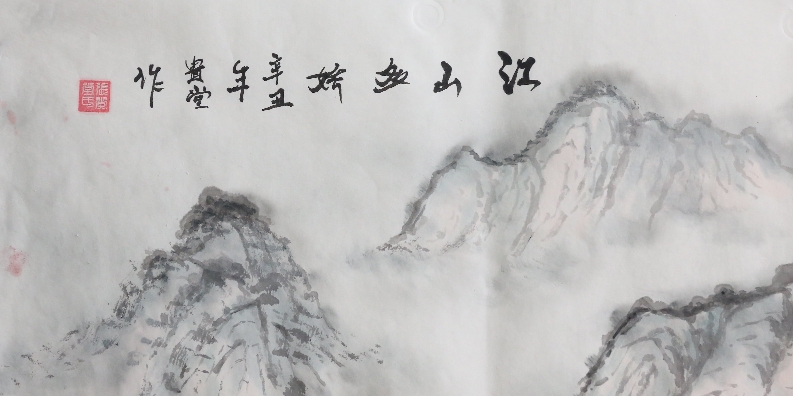 江山多娇辛丑年贵堂作